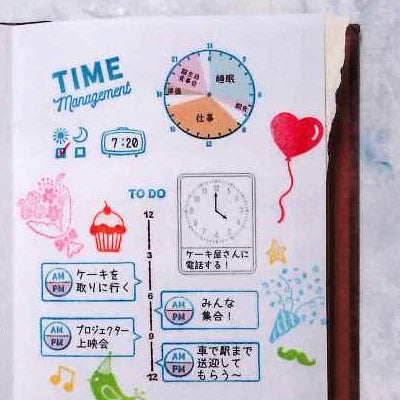 TIME
Management
睡眠
仕事
準備
7:20
TO DO
12
3
ケーキ屋さんに
電話する！
AM
PM
ケーキを
取りに行く
6
AM
PM
みんな
集合！
AM
PM
プロジェクター
上映会
9
AM
PM
車で駅まで
送迎して
もらう～
12